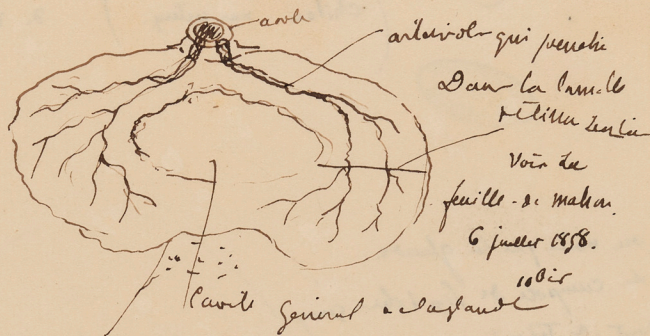 aorte
artériole qui penetre
Dans la lamelle
Voir la
feuille de mahon.
6 juillet 1858.
10 bis
Cavité general de la glande